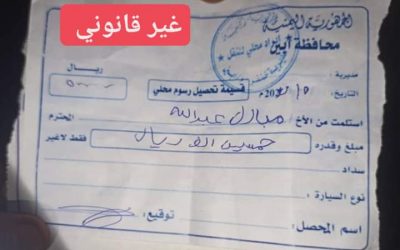 غير قانوني
الجمهورية اليمنية
محافظة أبين
ريال
مديرية :
التاريخ :
قسيمة تحصيل رسوم محلي
استلمت من الأخ / مبارك عبدالله المحترم
مبلغ وقدره خمسين الف ريال فقط لاغير
سداد
نوع السيارة :
اسم المحصل : توقيع :